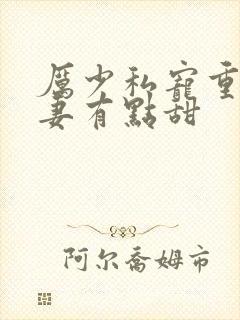 厲少私寵重
妻有點甜
阿尔喬姆市